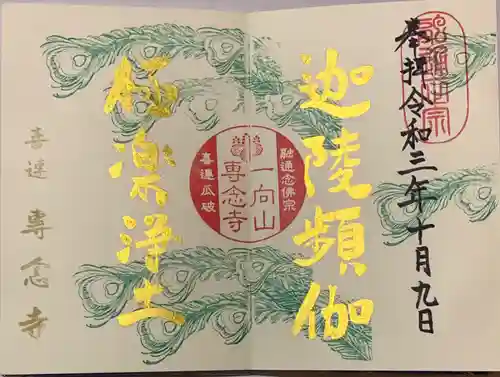 奉拝 令和三年十月九日
融通念佛宗
迦陵頻伽
融通念佛宗
一向山
専念寺
喜連瓜破
極楽浄土
喜連 専念寺